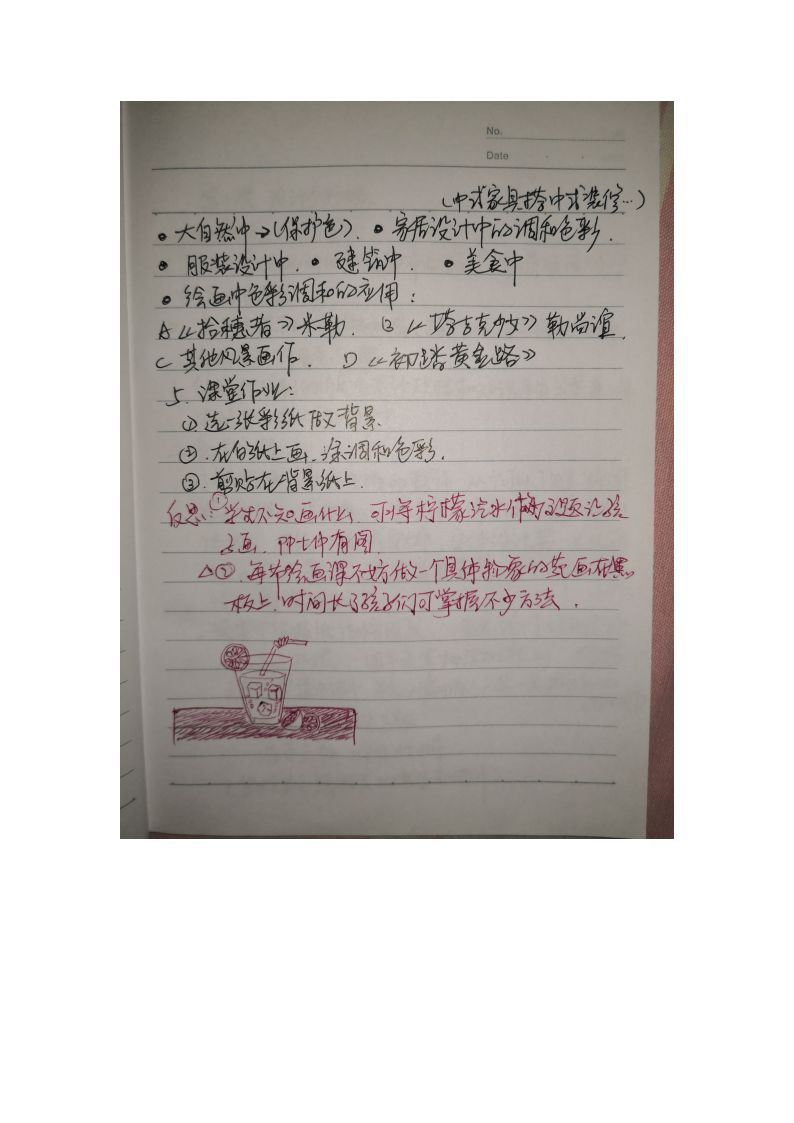 No.
Date
(中式家具搭中式装修…)
• 大自然中→(保护色). • 家居设计中的调和色彩.
• 服装设计中. • 建筑中. • 美食中
• 绘画中色彩调和的应用:
A《拾穗者》米勒. B《塔吉克少女》靳尚谊.
C 其他风景画作. D《初踏黄金路》
5. 课堂作业:
① 选一张彩纸做背景
②. 在白纸上画、涂调和色彩.
③. 剪贴在背景纸上.
反思:① 学生不知画什么, 可将柠檬汽水作为 让孩
子画,
△②. 每节绘画课不妨做一个具体形象的范画在黑
板上, 时间长了孩子们可掌握不少方法.